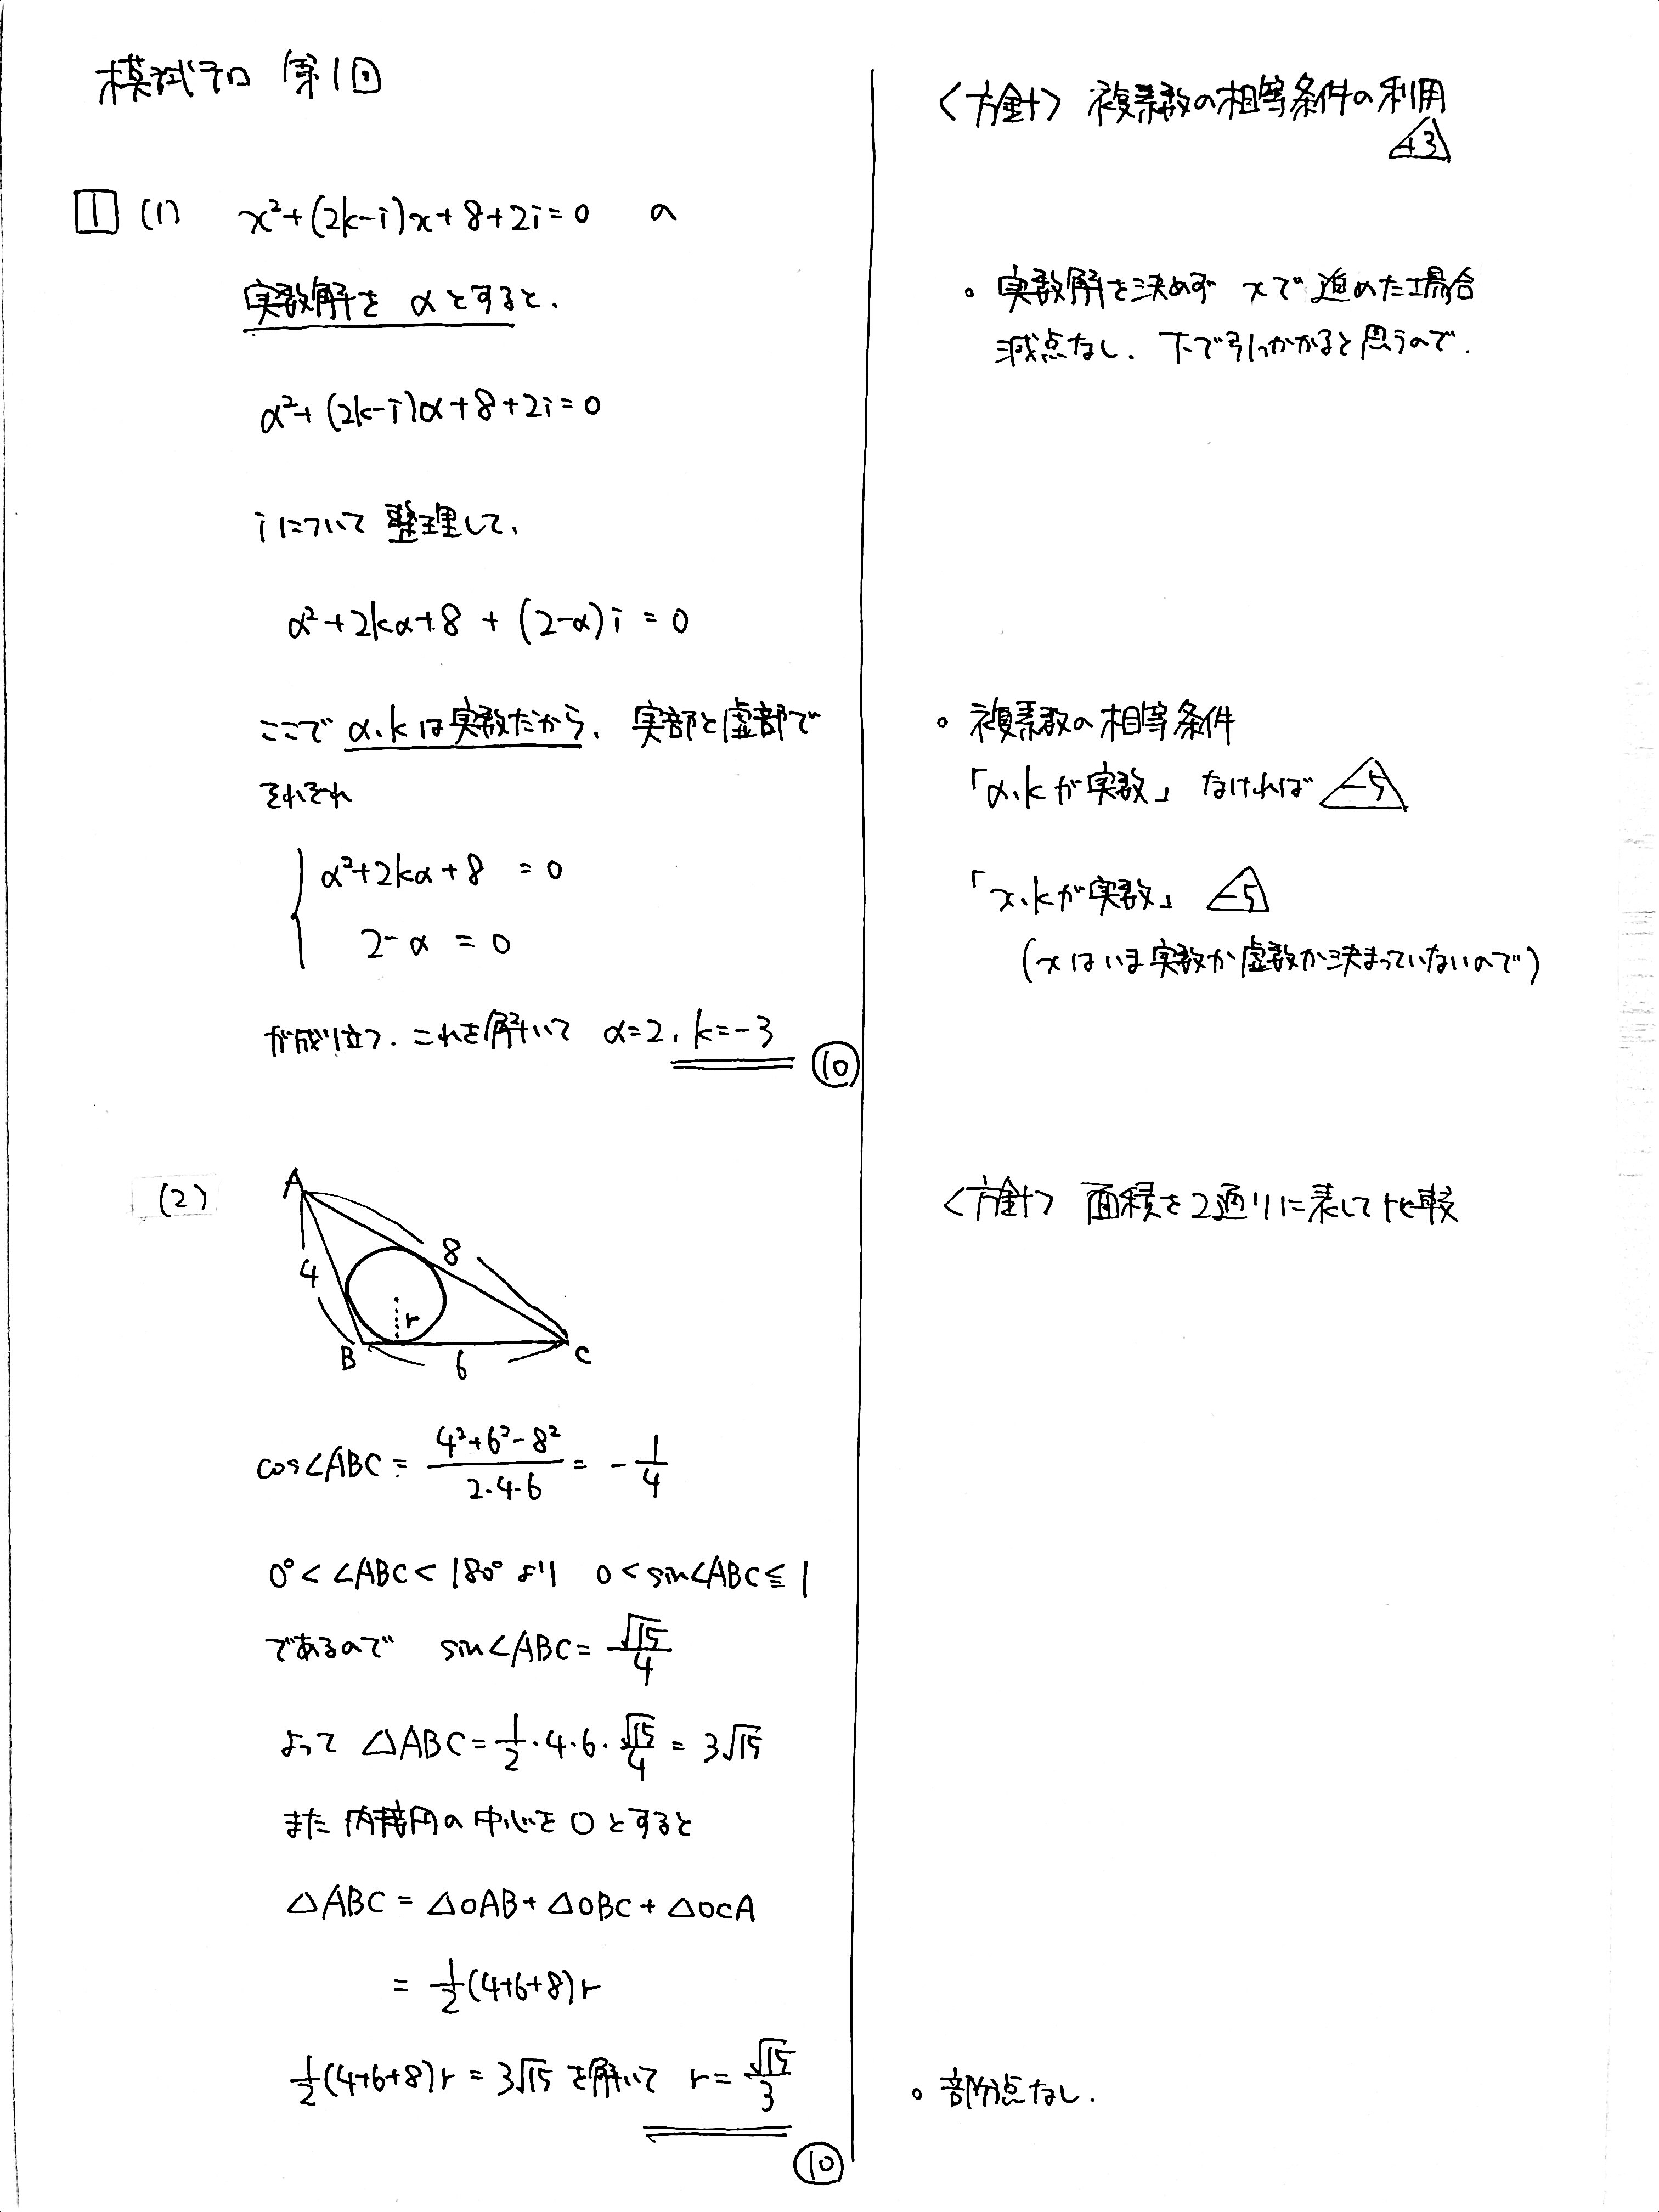 模試テロ 第1回
1 (1) x²+(2k-i)x+8+2i=0 の
実数解を αとすると、
α²+(2k-i)α+8+2i=0
iについて 整理して、
α²+2kα+8 + (2-α)i = 0
ここで α、kは実数だから、実部と虚部で
それぞれ
α²+2kα+8 = 0
2-α = 0
が成り立つ。これを解いて α=2、k=-3
10
(2)
A
8
4
r
B
6
C
cos∠ABC = (4²+6²-8²)/(2・4・6) = -1/4
0°<∠ABC<180°より 0<sin∠ABC≦1
であるので sin∠ABC = √15/4
よって △ABC = 1/2・4・6・√15/4 = 3√15
また 内接円の中心を Oとすると
△ABC = △OAB+△OBC+△OCA
= 1/2(4+6+8)r
1/2(4+6+8)r = 3√15 を解いて r = √15/3
10
〈方針〉 複素数の相等条件の利用
+3
。実数解を決めず xで 進めた場合
減点なし. 下で引っかかると思うので.
。複素数の相等条件
「α、kが実数」 なければ -5
「x、kが実数」 -5
(xはいま実数か虚数か決まっていないので)
〈方針〉 面積を2通りに表して比較
。部分点なし.